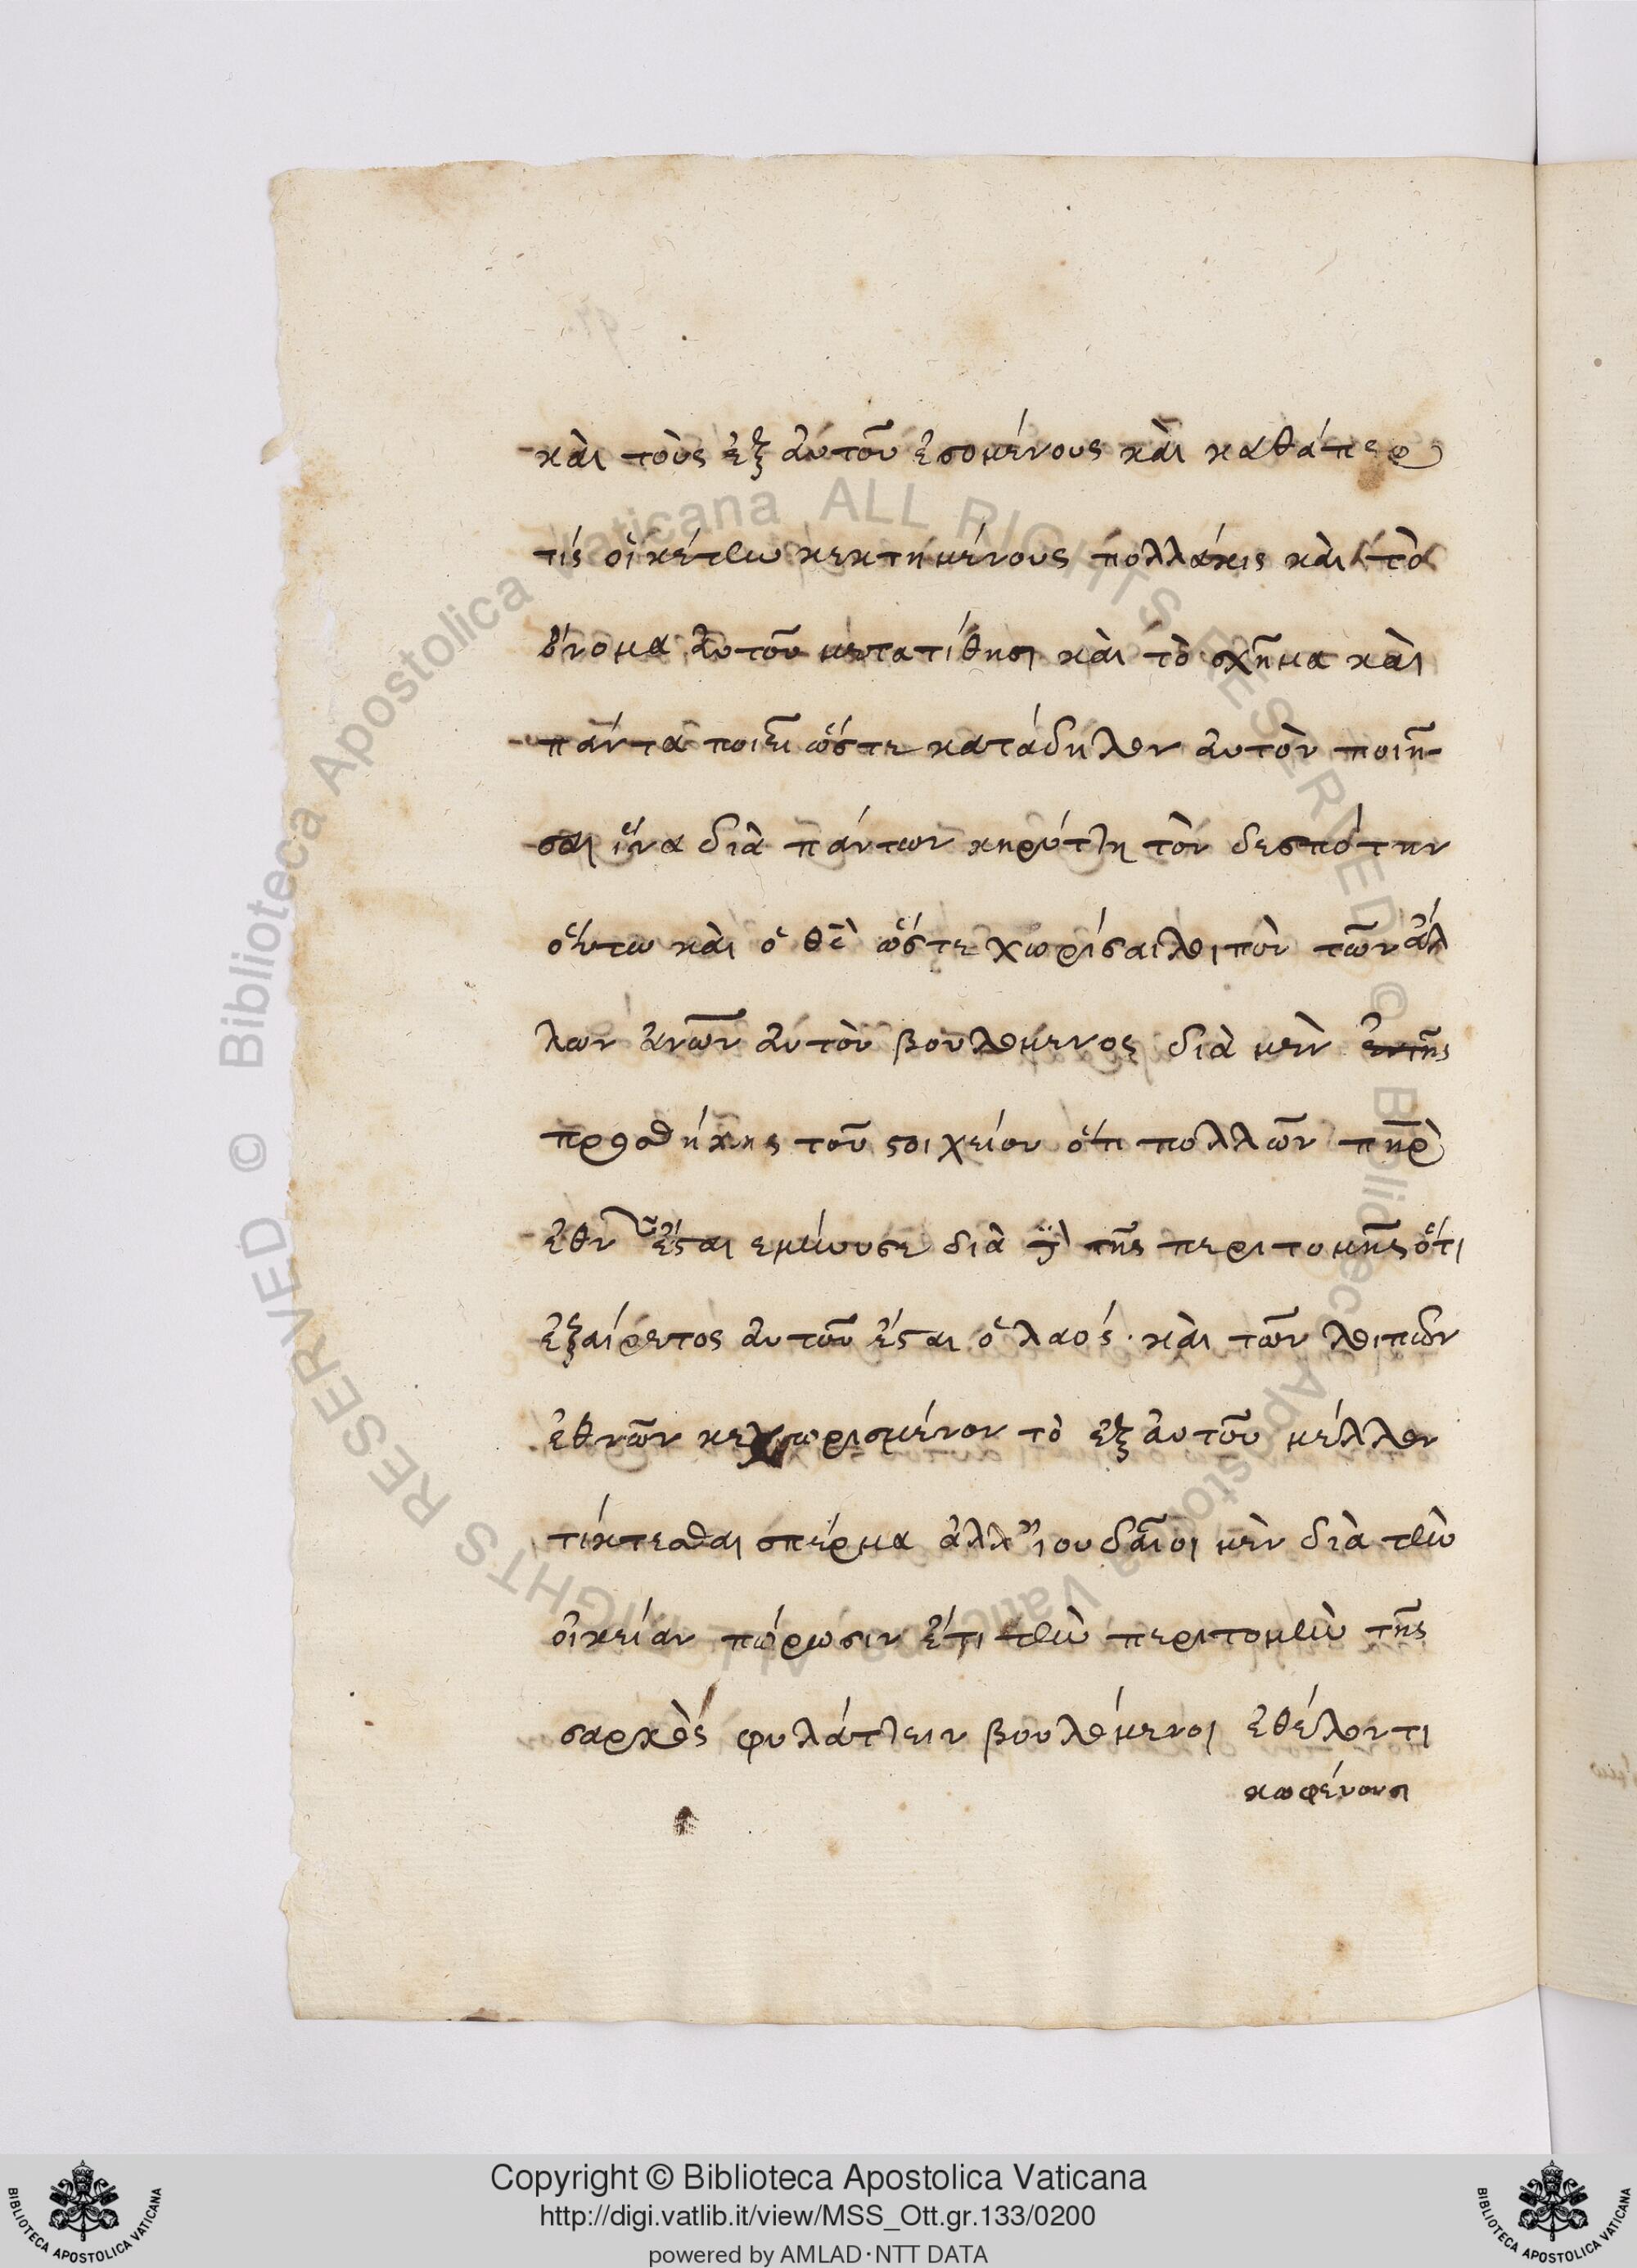 κὰι τοὺς ἐξ ἀυτοῦ ἐσομένους κὰι καθάπερ
τίς οἰκέτην κεκτημένους πολλάκις κὰι τὸ
ὄνομα ἀυτοῦ μετατίθησι κὰι τὸ σχῆμα κὰι
πάντα ποιεῖ ὥστε κατάδηλον ἀυτὸν ποιῆ-
σαι ἵνα διὰ πάντων κηρύττη τὸν δεσπότην
ὅυτω κὰι ὁ θς ὥστε χωρίσαι λοιπὸν τῶν ἄλ
λων ἀνῶν ἀυτὸν βουλόμενος διὰ μὲν τῆς
προσθήκης τοῦ στοιχείου ὅτι πολλῶν πῆρ
ἐθνῶν ἔσται ἐμήνυσε διὰ δὲ τῆς περιτομῆς ὅτι
ἐξαίρετος ἀυτοῦ ἔσται ὁ λαός· κὰι τῶν λοιπῶν
ἐθνῶν κεχωρισμένον τὸ ἐξ ἀυτοῦ μέλλον
τίκτεσθαι σπέρμα ἀλλ' ἰουδαῖοι μὲν διὰ τὴν
οἰκείαν πώρωσιν ἔτι τὴν περιτομὴν τῆς
σαρκὸς φυλάττειν βουλόμενοι ἐθέλοντι
κωφένουσι
Copyright © Biblioteca Apostolica Vaticana
http://digi.vatlib.it/view/MSS_Ott.gr.133/0200
powered by AMLAD·NTT DATA
BIBLIOTECA APOSTOLICA VATICANA
BIBLIOTECA APOSTOLICA VATICANA
© Biblioteca Apostolica Vaticana ALL RIGHTS RESERVED © Biblioteca Apostolica Vaticana ALL RIGHTS RESERVED